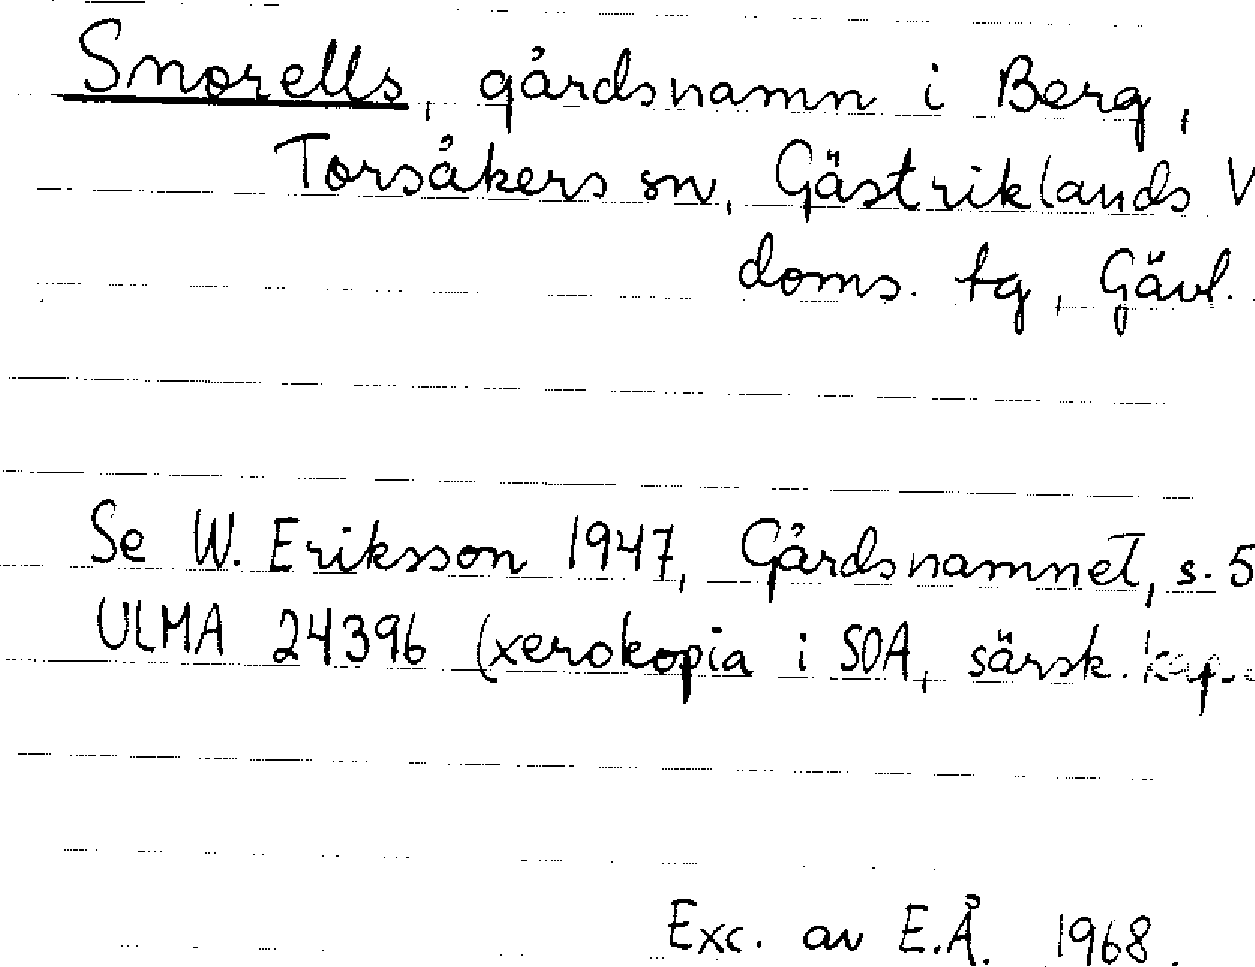 Snorells, gårdsnamn i Berg,
Torsåkers sn, Gästriklands V
doms. tg, Gävl.
Se W. Eriksson 1947, Gårdsnamnet, s. 5
ULMA 24396 (xerokopia i SOA, särsk. kap.
Exc. av E.Å. 1968.